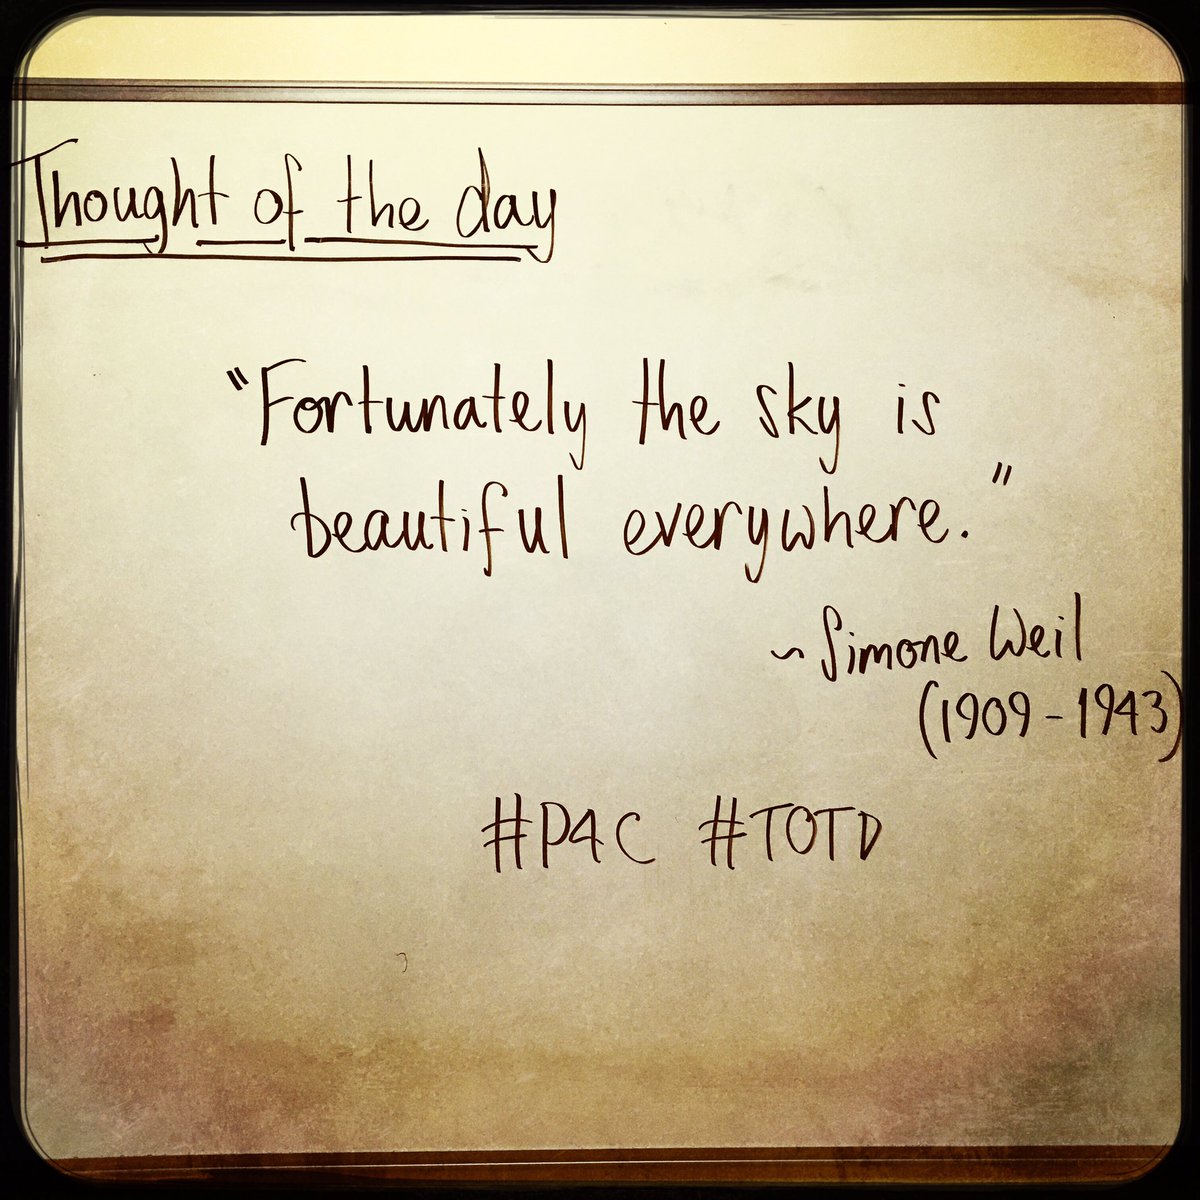 Thought of the day
"Fortunately the sky is
beautiful everywhere."
~ Simone Weil
(1909 - 1943)
#P4C #TOTD